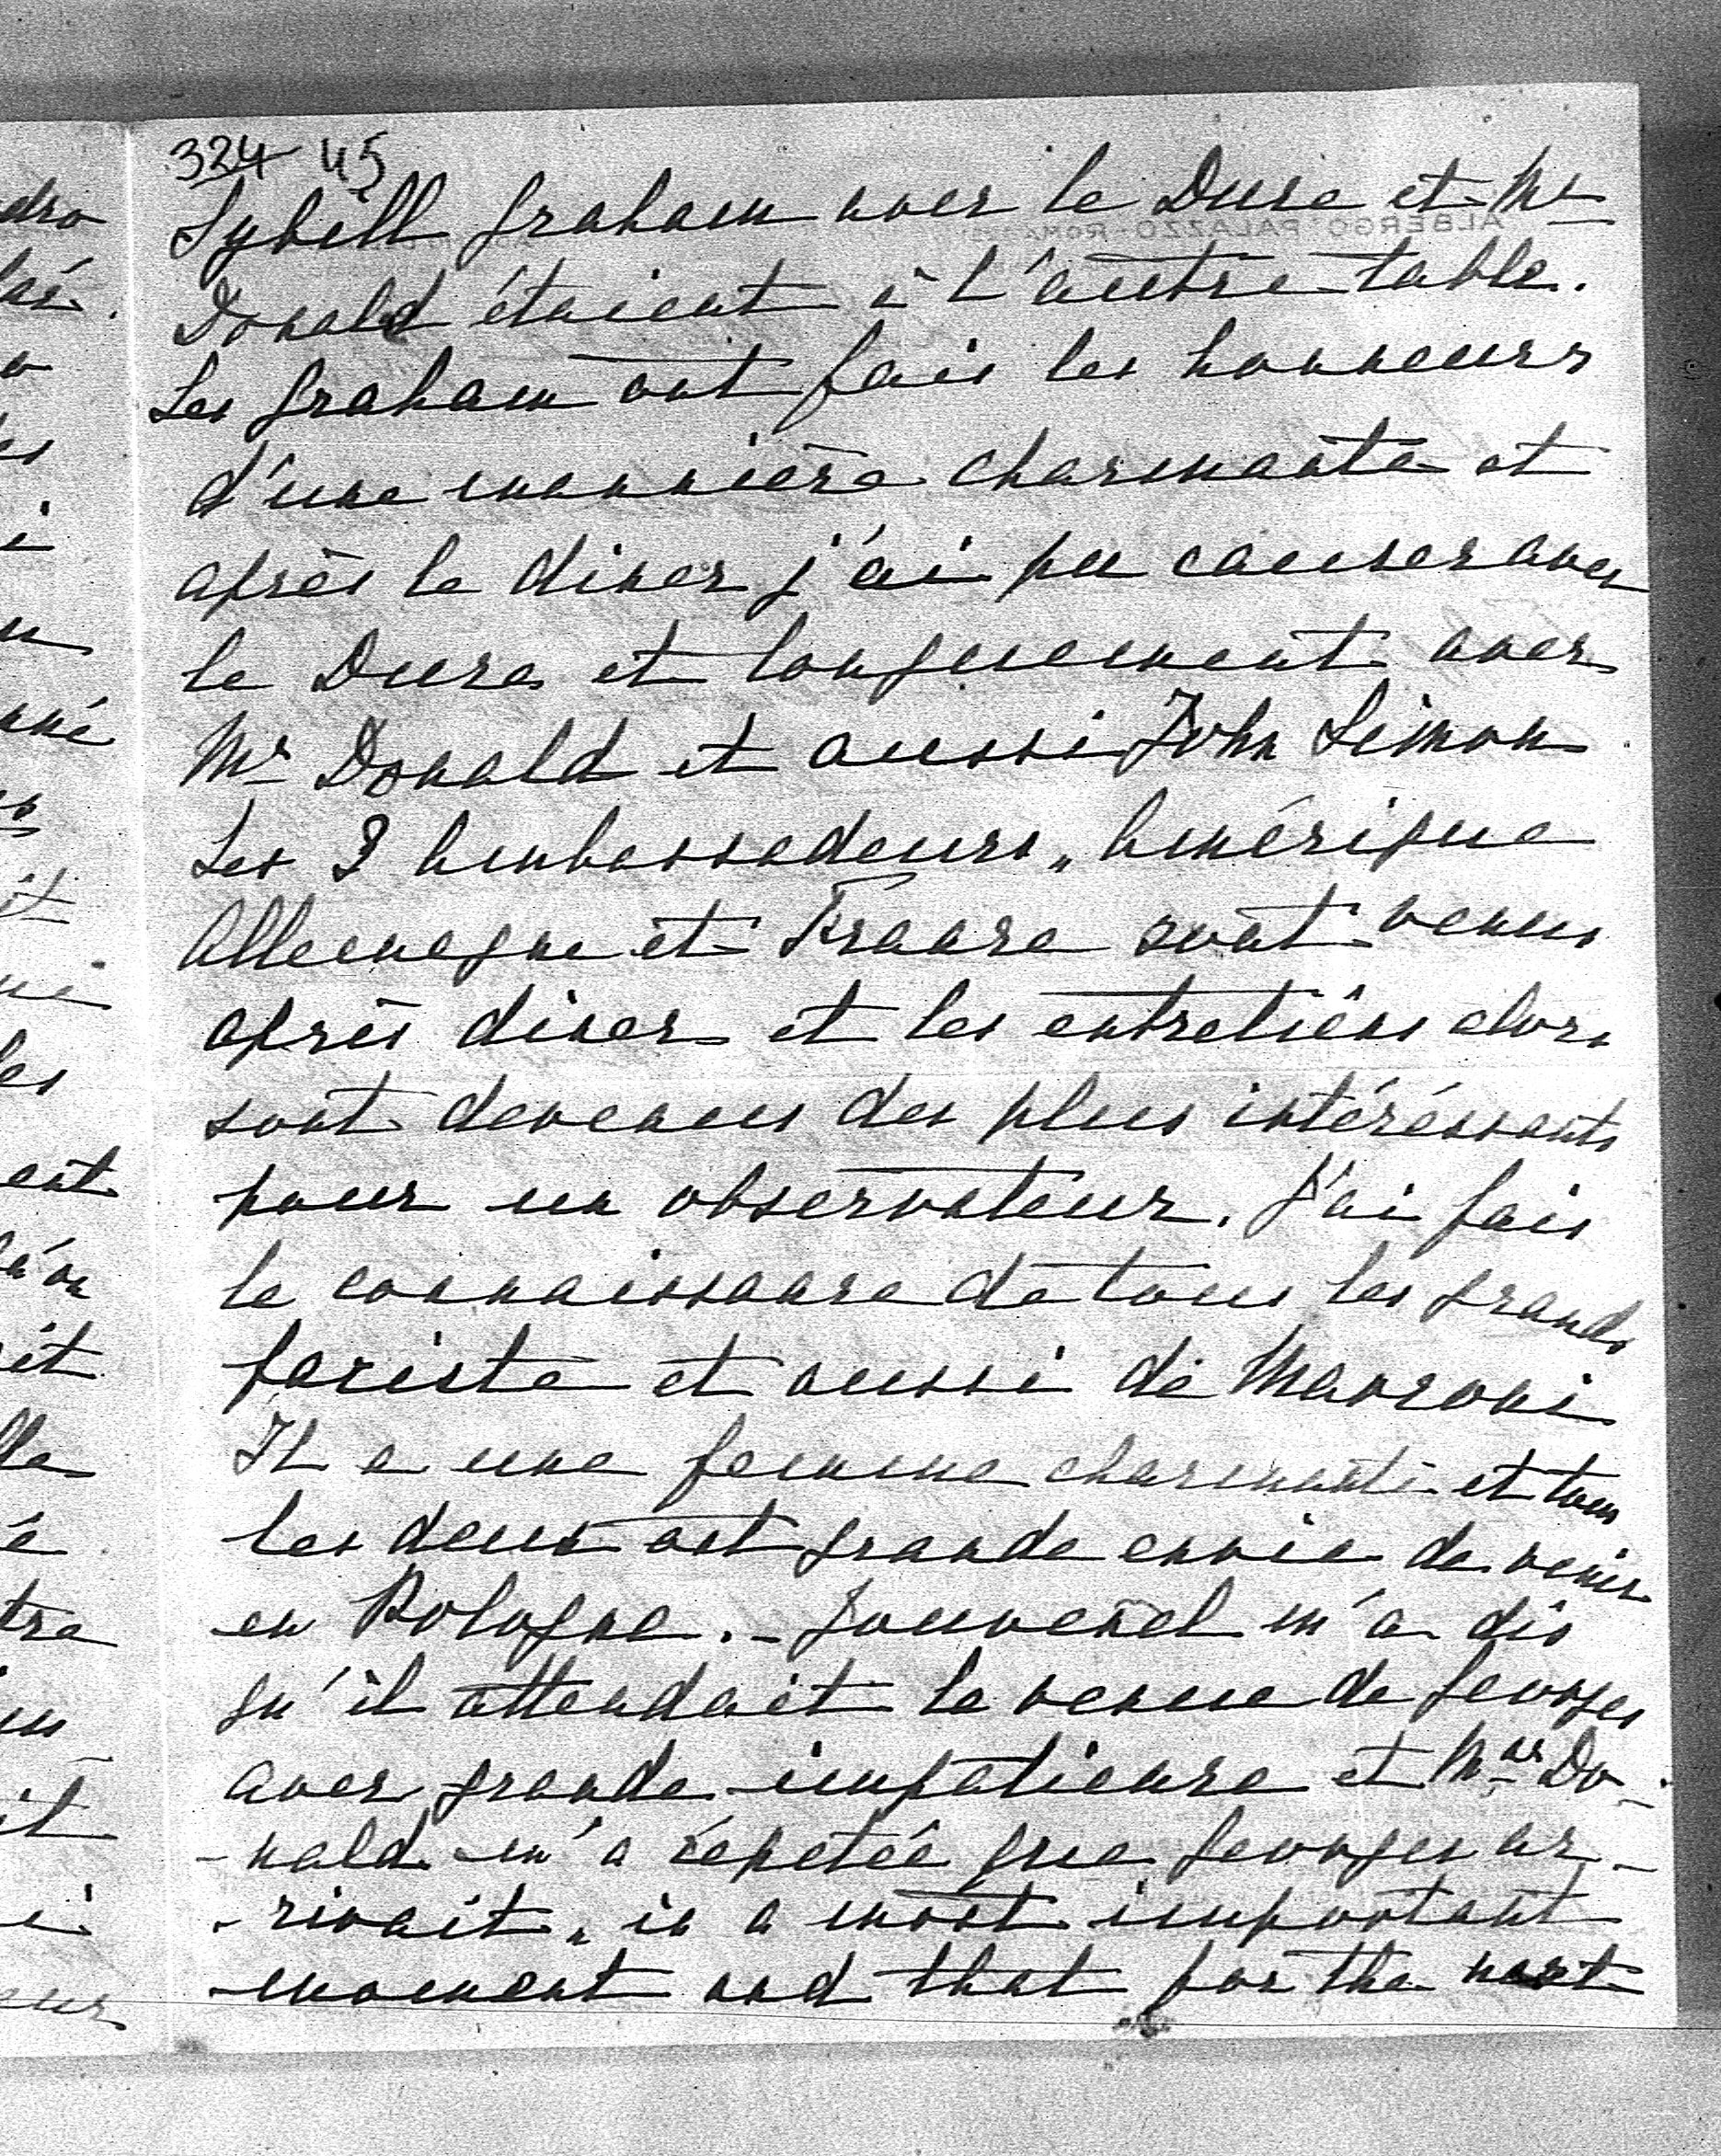 324 45
Sybill Graham avec le Duce et Mc
Donald étaient à l'autre table.
Les Graham ont fais les honneurs
d'une mannière charmante et
après le diner j'ai pu causer avec
le Duce et longuement avec
Mc Donald et aussi John Simon
Les 3 Ambassadeurs „ Amérique
Allemagne et France sont venus
après diner et les entretiens alors
sont devenus des plus intéréssants
pour un observateur. J'ai fais
la connaissance de tous les grands
faciste et aussi de Marconi
Il a une femme charmante et tous
les deux ont grande envie de venir
en Pologne. - Jouvenel m'a dis
qu'il attendait la venue de Georges
avec grande impatience et Mac Do-
-nald m'a répetée que Georges ar-
-rivait „ in a most important
moment and that for the next